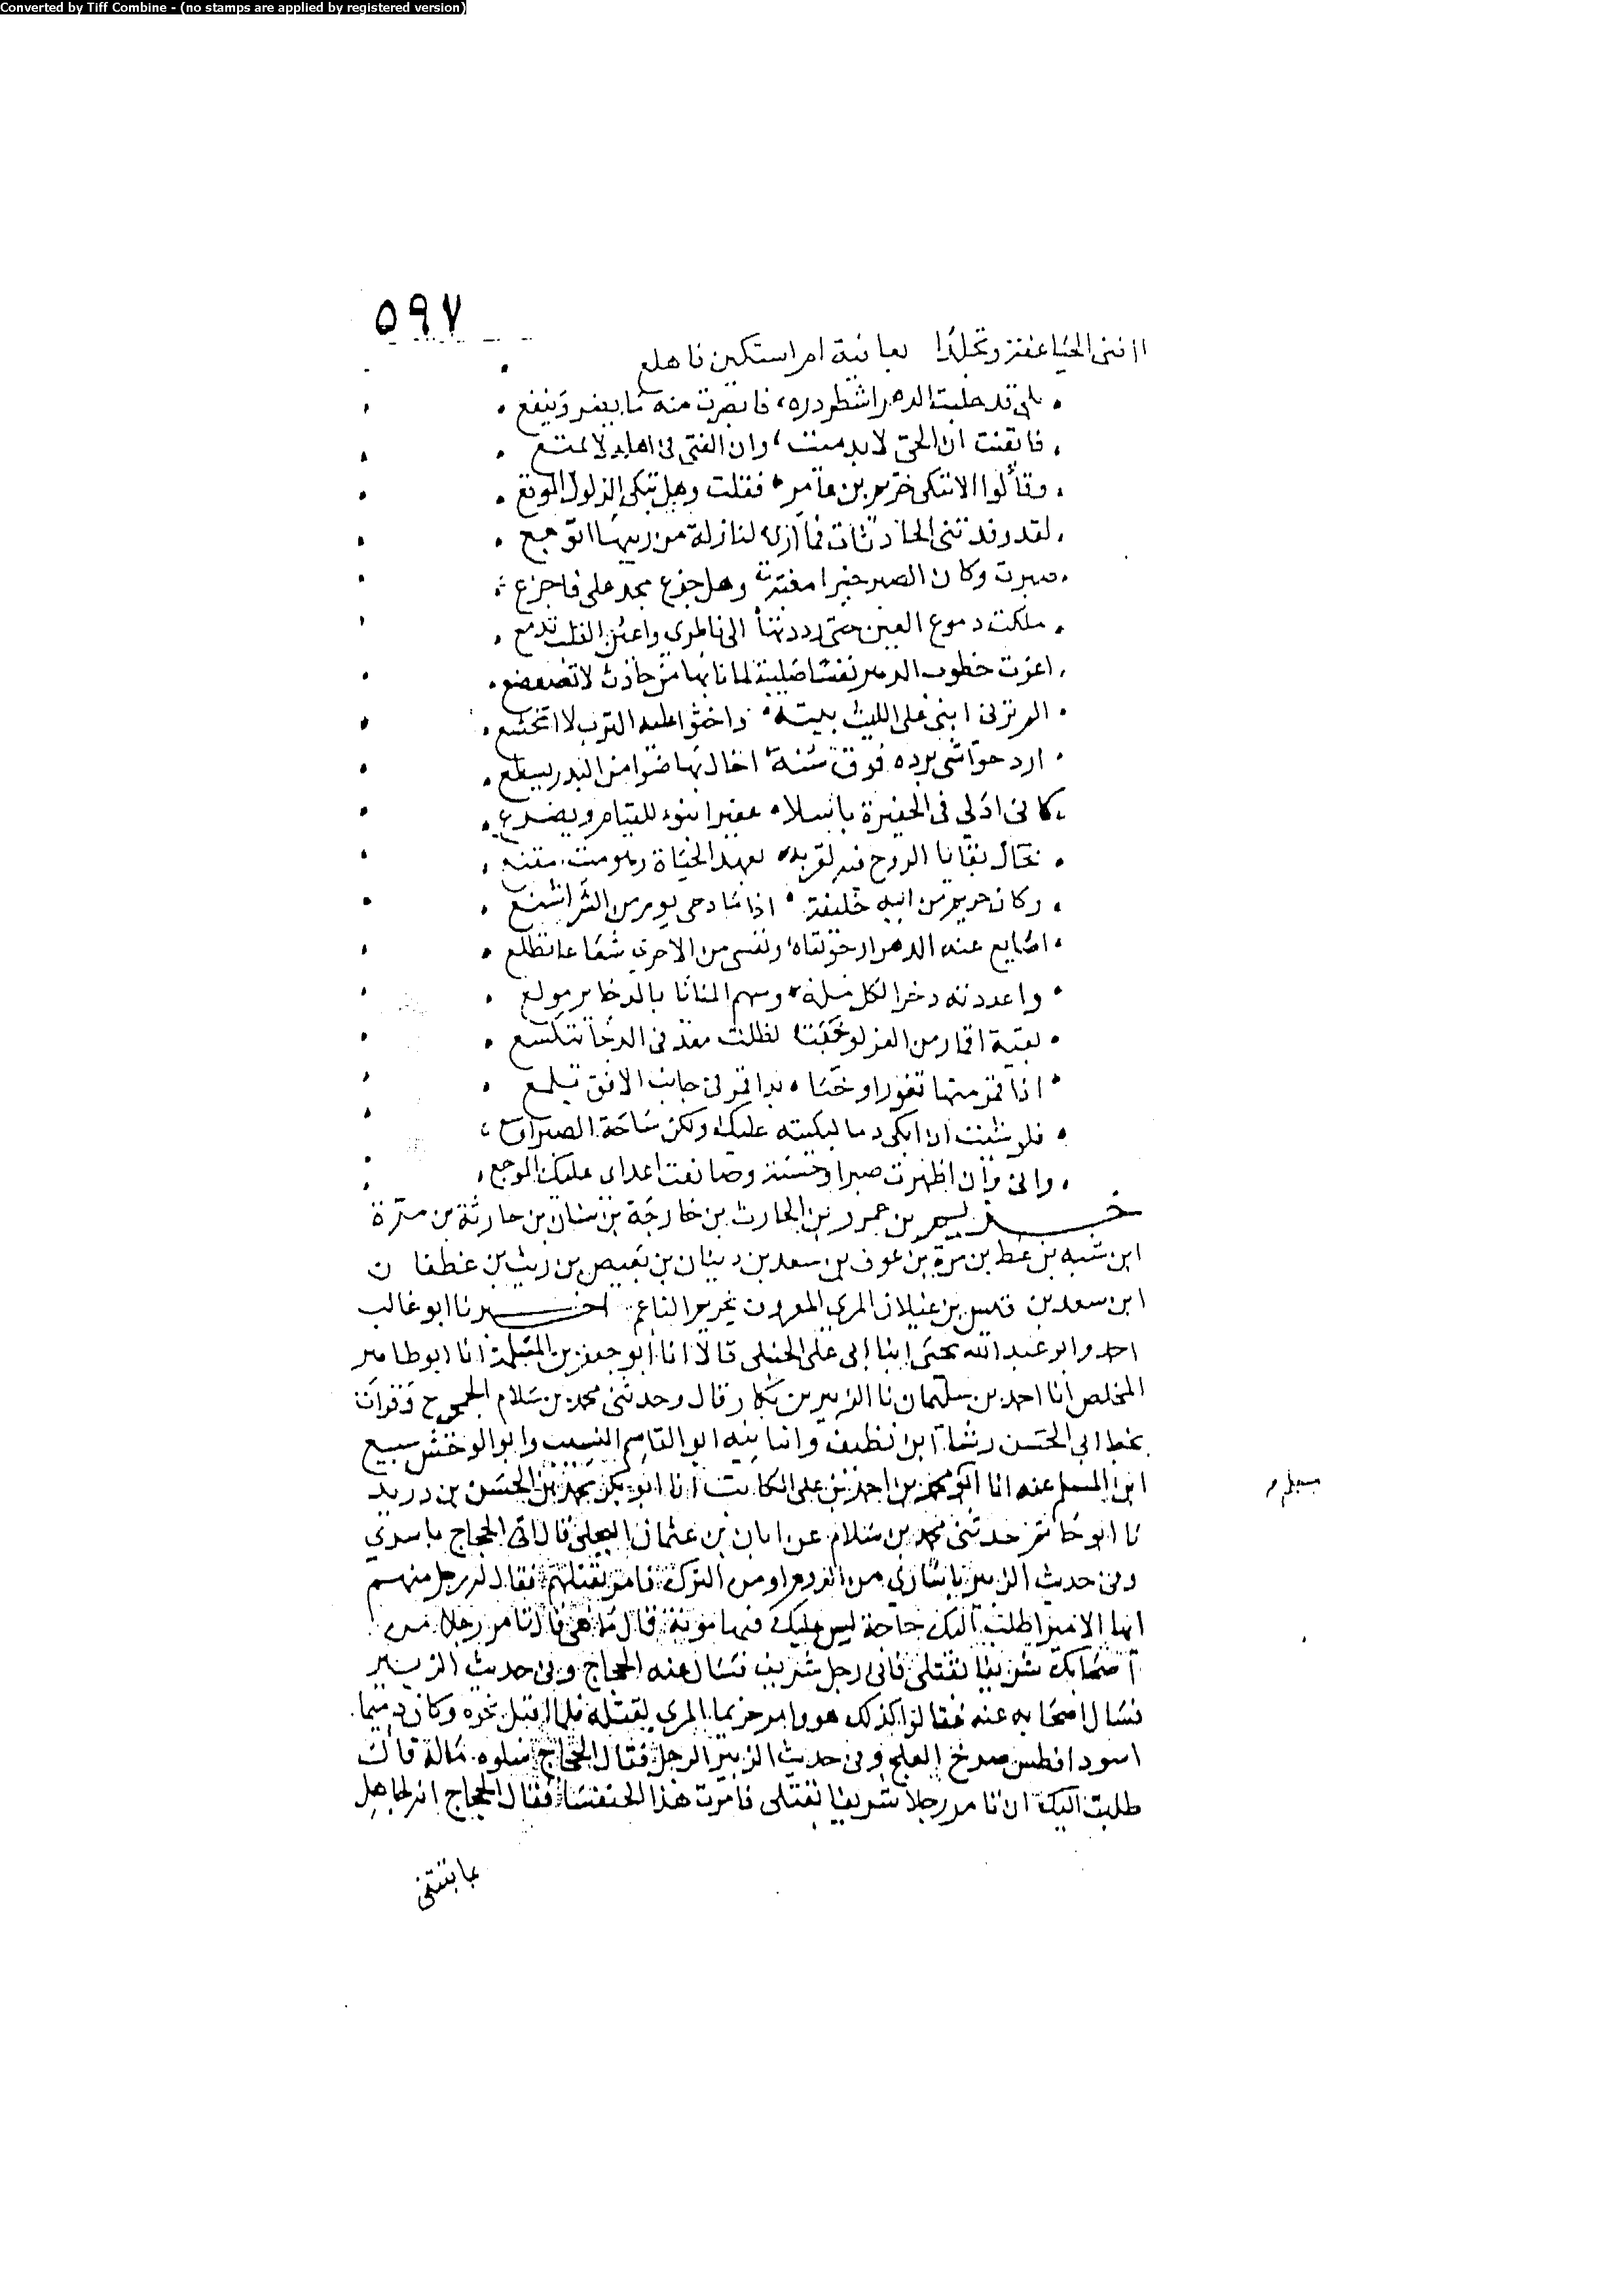 Converted by Tiff Combine - (no stamps are applied by registered version)
٥٩٧
الحيا عفة وتجلدا لعافية ام استكين فاهلع
بلى قد حلبت الدهر اشطر دره فابصرت منه ما يضر وينفع
فايقنت ان الحي لابد ميت وان الفتى في اهله لا يمتع
وقالوا الا تبكي خريم بن عامر فقلت وهل تبكي الذلول الموقع
لقد وقذتني الحادثات فما ارى لنازلة من ريبها اتوجع
صبرت وكان الصبر خيرا مغبة وهل جزع مجد علي فاجزع
ملكت دموع العين حتى رددتها الى ناظري واعين القلب تدمع
اعزت خطوب الدهر نفسا صليبة لما نابها من حادث لا تضعضع
الم ترني ابني على الليث بيته واحثوا عليه الترب لا اتخشع
ارد حواشي برده فوق سنة اخال بها ضوا من البدر يسطع
كاني ادلي في الحفيرة باسلا عقيرا ينوء للقيام ويصرع
تخال بقايا الروح فيه لقربه بعهد الحياة وهو ميت مقنع
وكان خريم من ابيه خليفة اذا ما دجى يوم من الشر اشنع
اصانع عنه الدهر ارجو بقاه ونفسي من الاخرى شعاعا تطلع
واعددته ذخرا لكل ملمة وسهم المنايا بالذخاير مولع
بقية اقمار من العز لو خبت لظلت معد في الدجا تتكسع
اذا قمر منها تغور او خبا بدا قمر في جانب الافق يلمع
فلو شئت ان ابكي دما لبكيته عليك ولكن ساحة الصبر اوسع
واني وان اظهرت صبرا وحسبة وصانعت اعداي عليك لموجع
خريم بن عمرو بن الحارث بن خارجة بن سنان بن حارثة بن مرة
ابن نشبه بن غيظ بن مرة بن عوف بن سعد بن ذبيان بن بغيض بن ريث بن غطفان
ابن سعد بن قيس بن عيلان المري المعروف بخريم الناعم اخبرنا ابو غالب
احمد وابو عبد الله يحيى ابنا ابي علي الحنبلي قالا انا ابو جعفر بن المسلمة انا ابو طاهر
المخلص انا احمد بن سليمان نا الزبير بن بكار قال وحدثني محمد بن سلام الجمحي ح وقرات
بخط ابي الحسن رشا ابن نظيف وانبانيه ابو القاسم النسيب وابو الوحش سبيع
ابن المسلم عنه انا ابو مسلم محمد بن احمد بن علي الكاتب انا ابو بكر محمد بن الحسن بن دريد
مسلم
نا ابو حاتم حدثني محمد بن سلام عن ابان بن عثمان البجلي قال اتي الحجاج باسرى
وفي حديث الزبير باسارى من الروم او من الترك فامر بقتلهم فقال له رجل منهم
ايها الامير اطلب اليك حاجة ليس عليك فيها مونة قال ما هي قال تامر رجلا من
اصحابك شريفا يقتلني فاني رجل شريف فسال عنه الحجاج وفي حديث الزبير
فسال اصحابه عنه فقالوا كذلك هو وامر خريما المري بقتله فلما اقبل نحوه وكان دميما
اسود افطس صرخ العلج وفي حديث الزبير الرجل فقال الحجاج سلوه ماله قال
طلبت اليك ان تامر رجلا شريفا يقتلني فامرت هذا الخنفسا فقال الحجاج انه لجاهل
بما تبتغي